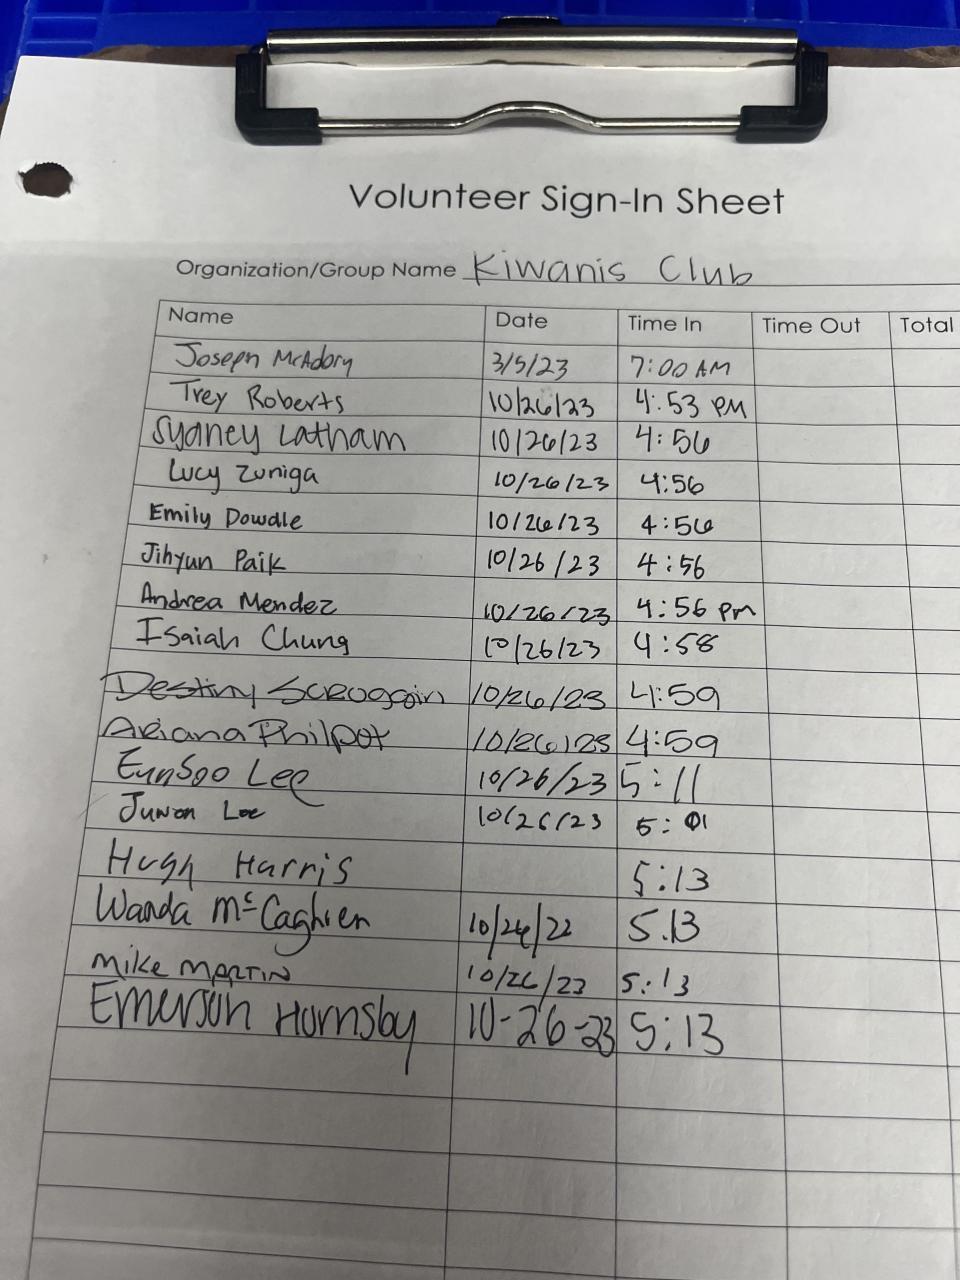 Volunteer Sign-In Sheet
Organization/Group Name Kiwanis Club
Name Date Time In Time Out Total
Joseph McAdory 3/5/23 7:00 AM
Trey Roberts 10/26/23 4:53 PM
Sydney Latham 10/26/23 4:56
Lucy Zuniga 10/26/23 4:56
Emily Dowdle 10/26/23 4:56
Jihyun Paik 10/26/23 4:56
Andrea Mendez 10/26/23 4:56 pm
Isaiah Chung 10/26/23 4:58
Destiny Scroggin 10/26/23 4:59
Ariana Philpot 10/26/23 4:59
EunSoo Lee 10/26/23 5:11
Junon Lee 10/26/23 5:01
Hugh Harris 5:13
Wanda McCaghren 10/26/22 5.13
Mike MARTIN 10/26/23 5:13
Emerson Hornsby 10-26-23 5:13